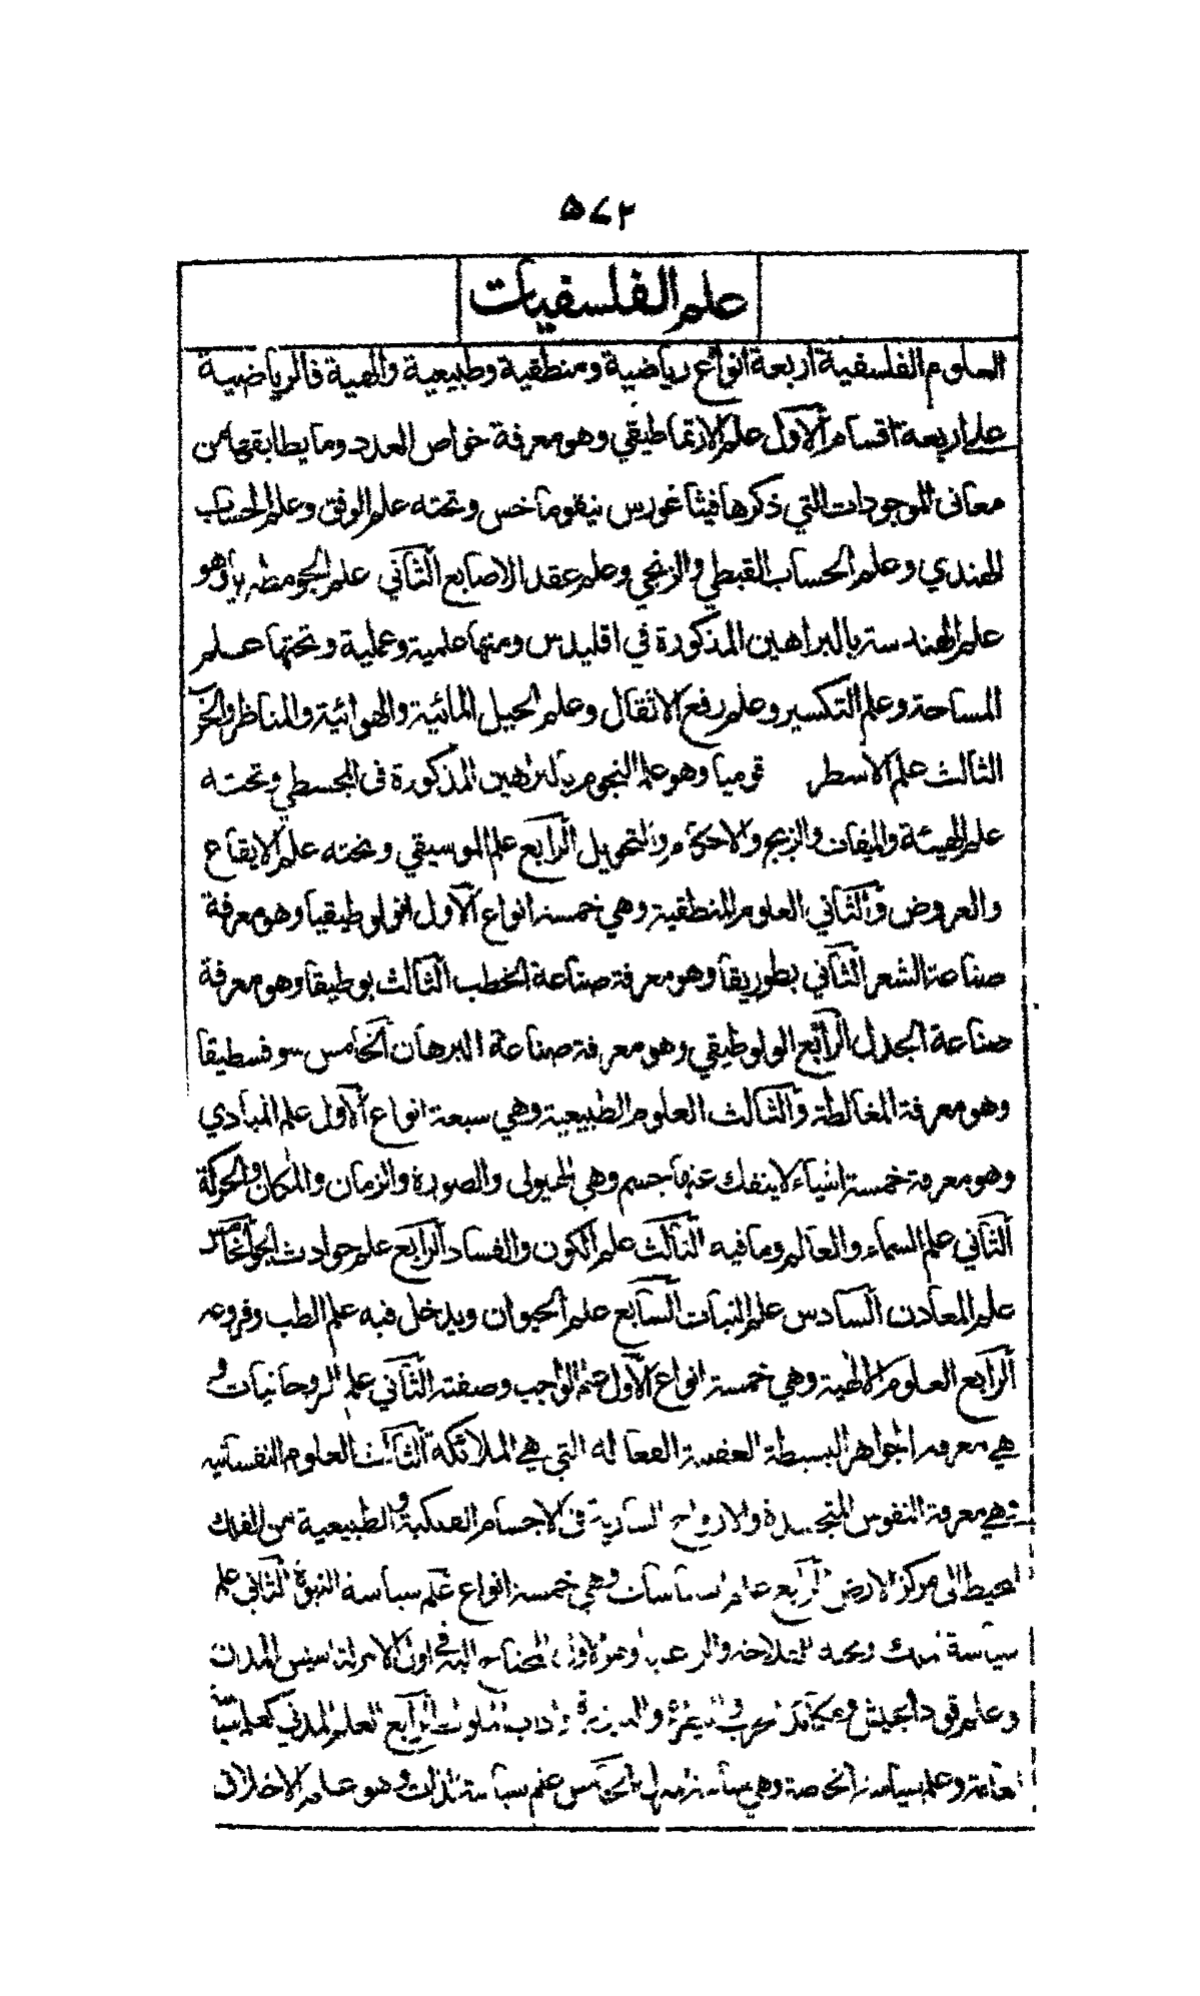 ٥٧٢
علم الفلسفيات
العلوم الفلسفية اربعة انواع رياضية ومنطقية وطبيعية والهية فالرياضية
على اربعة اقسام الاول علم الارتماطيقي وهو معرفة خواص العدد وما يطابقها من
معانى الموجودات التي ذكرها فيثاغورس نيقوماخس وتحته علم الوفق وعلم الحساب
الهندي وعلم الحساب القبطي والزنجي وعلم عقد الاصابع الثاني علم الجومطريا وهو
علم الهندسة بالبراهين المذكورة في اقليدس ومنها علمية وعملية وتحتها علم
المساحة وعلم التكسير وعلم رفع الاثقال وعلم الحيل المائية والهوائية والمناظر والحر
الثالث علم الاسطر قوميا وهو علم النجوم بالبراهين المذكورة فى المجسطي وتحته
علم الهيئة والميقات والزيج والاحكام والتحويل الرابع علم الموسيقي وتحته علم الايقاع
والعروض والثاني العلوم المنطقية وهي خمسة انواع الاول انولوطيقيا وهو معرفة
صناعة الشعر الثاني بطوريقا وهو معرفة صناعة الخطب الثالث بوطيقا وهو معرفة
صناعة الجدل الرابع الولوطيقي وهو معرفة صناعة البرهان الخامس سوفسطيقا
وهو معرفة المغالطة والثالث العلوم الطبيعية وهي سبعة انواع الاول علم المبادي
وهو معرفة خمسة اشياء لا ينفك عنها جسم وهي الهيولى والصورة والزمان والمكان والحركة
الثاني علم السماء والعالم وما فيه الثالث علم الكون والفساد الرابع علم حوادث الجو الخامس
علم المعادن السادس علم النبات السابع علم الحيوان ويدخل فيه علم الطب وفروعه
الرابع العلوم الالهية وهي خمسة انواع الاول علم الواجب وصفته الثاني علم الروحانيات و
هي معرفة الجواهر البسيطة العقلية الفعالة التي هي الملائكة الثالث العلوم النفسانية
وهي معرفة النفوس المتجسدة والارواح السارية فى الاجسام الفلكية والطبيعية من الفلك
المحيط الى مركز الارض الرابع علم السياسات وهي خمسة انواع علم سياسة النبوة الثاني علم
سياسة الملك وتحته الفلاحة والرعاية وهو الاول المحتاج اليه في اول الامر لتاسيس المدن
وعلم قود الجيش ومكائد الحرب والبيطرة والبيزرة وآداب الملوك الرابع العلم المدني كعلم سياسة
العامة وعلم سياسة الخاصة وهي سياسة المنزل الخامس علم سياسة الذات وهو علم الاخلاق